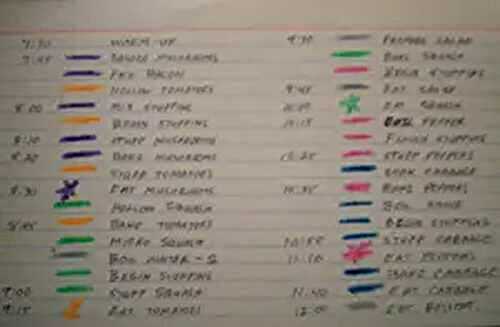 7:30 WARM-UP
7:45 BOARD MUSHROOMS
FRY BACON
HOLLOW TOMATOES
8:00 MIX STUFFING
BEGIN STUFFING
8:10 STUFF MUSHROOMS
8:20 BAKE MUSHROOMS
STUFF TOMATOES
8:30 EAT MUSHROOMS
HOLLOW SQUASH
8:45 BAKE TOMATOES
MICRO SQUASH
BOIL WATER - 2
BEGIN STUFFING
9:00 STUFF SQUASH
9:15 EAT TOMATOES
9:30 PREPARE SALAD
BAKE SQUASH
BEGIN STUFFING
9:45 EAT
10:00 EAT SQUASH
10:15 BOIL PEPPER
FINISH STUFFING
10:25 STUFF PEPPERS
CABBAGE
10:35 BAKE PEPPERS
BOIL
BEGIN STUFFING
10:55 STUFF CABBAGE
11:10 EAT PEPPERS
BAKE CABBAGE
11:40 EAT CABBAGE
12:00 EAT